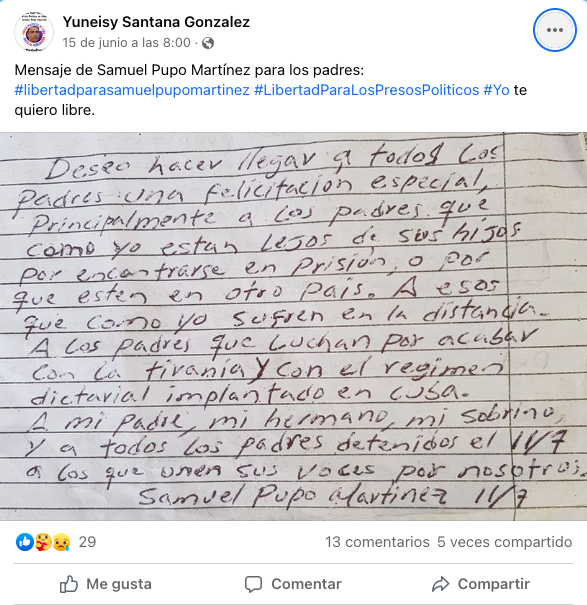 Yuneisy Santana Gonzalez
15 de junio a las 8:00 ·
Mensaje de Samuel Pupo Martínez para los padres:
#libertadparasamuelpupomartinez #LibertadParaLosPresosPoliticos #Yo te
quiero libre.
Deseo hacer llegar a todos Los
Padres una felicitación especial,
Principalmente a Los padres que
como yo estan Lejos de sus hijos
por encontrarse en Prisión, o por
que esten en otro Pais. A esos
que como yo sufren en la distancia.
A Los padres que Luchan por acabar
con La tirania y con el regimen
dictarial implantado en cuba.
A mi Padre, mi hermano, mi sobrino,
y a todos Los padres detenidos el 11/7
a los que unen sus voces por nosotros.
Samuel Pupo Martinez 11/7
29
13 comentarios 5 veces compartido
Me gusta
Comentar
Compartir